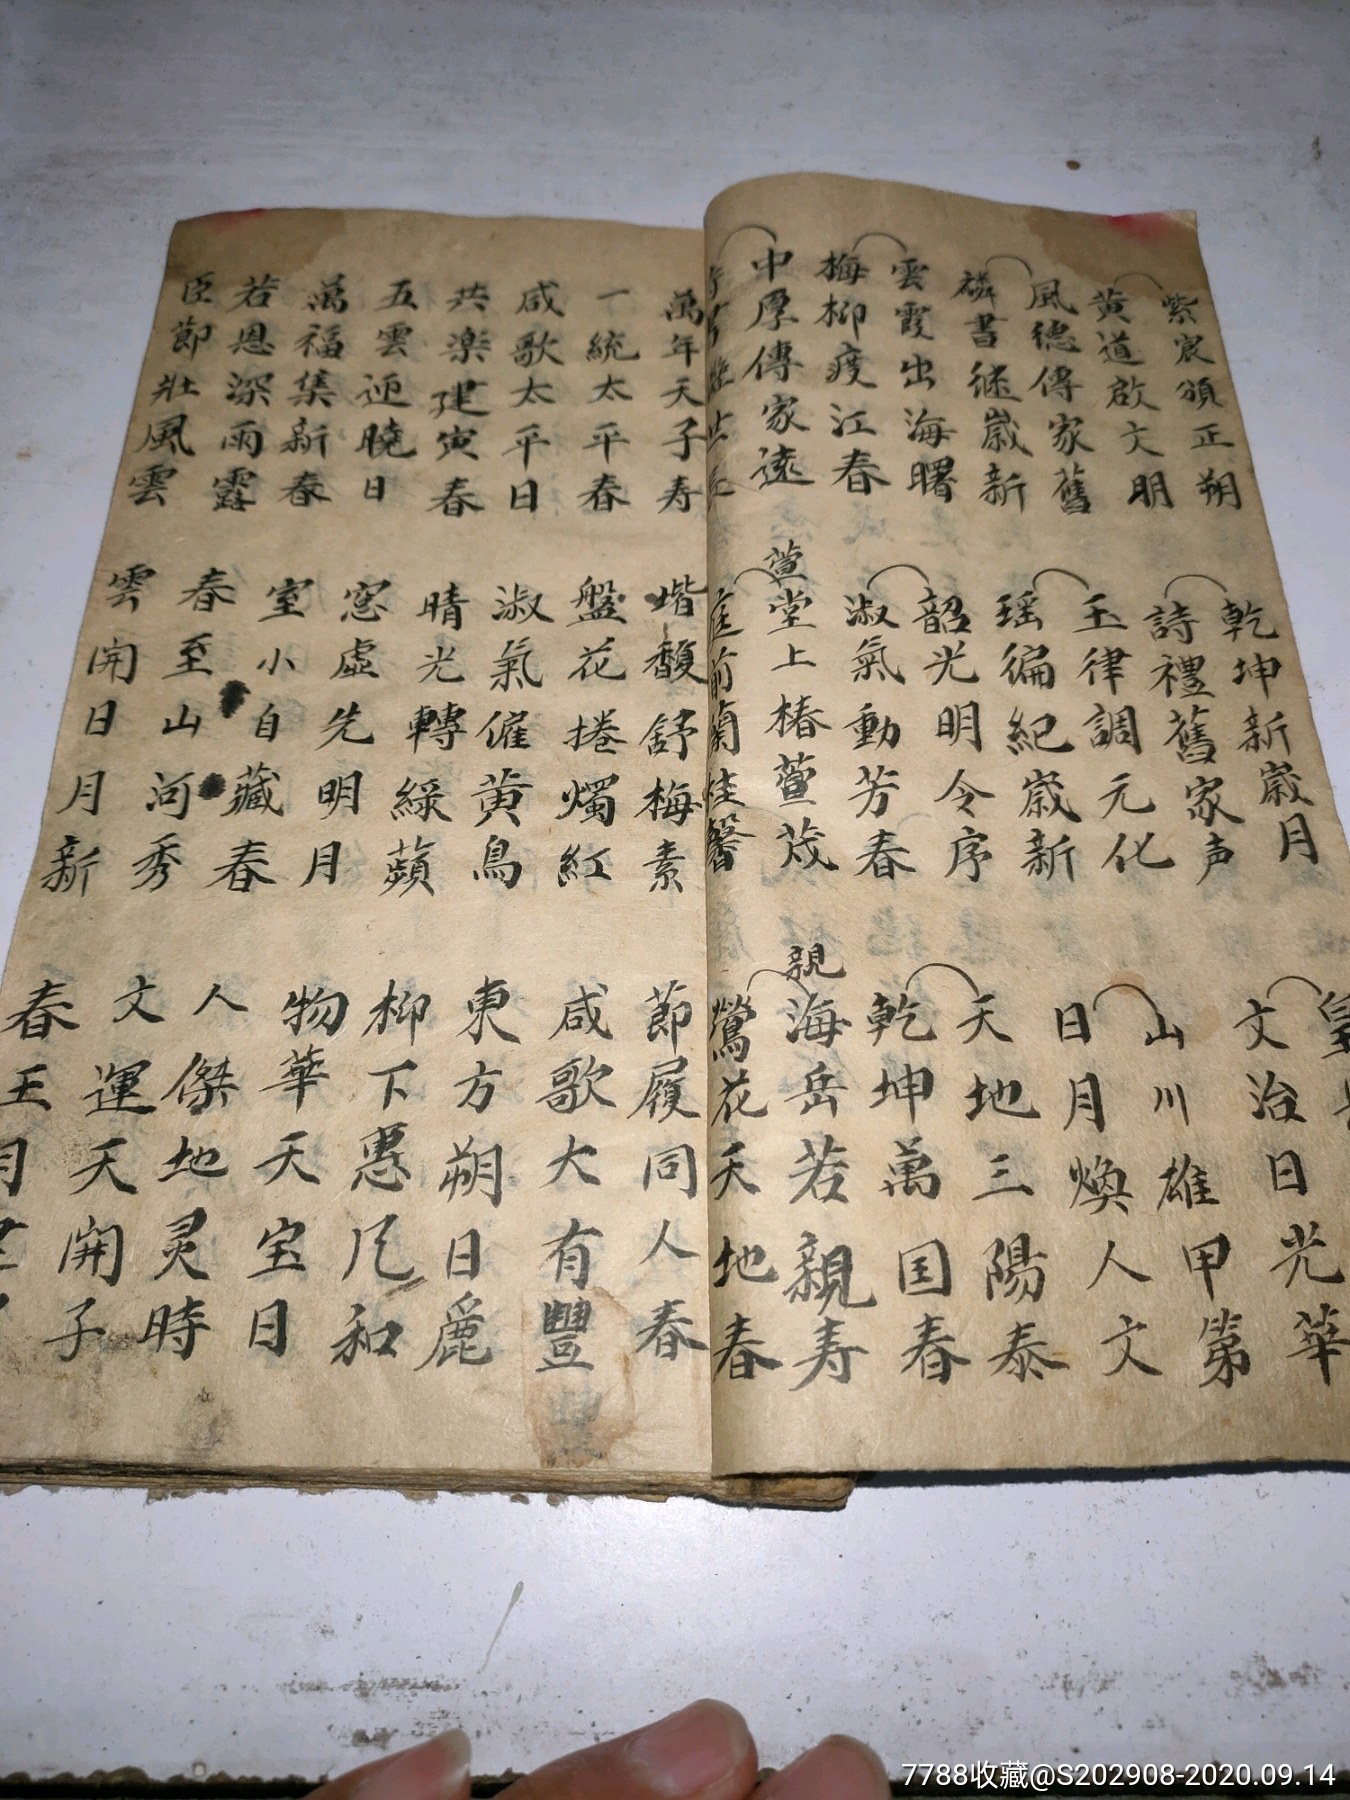 紫宸頒正朔
黄道啟文明
風德傳家舊
書继嵗新
雲霞出海曙
梅柳度江春
中厚傳家遠
乾坤新嵗月
詩禮舊家声
玉律調元化
瑶编紀嵗新
韶光明令序
淑氣動芳春
萱
堂上椿萱茂
庭前蘭桂馨
文治日光華
山川雄甲第
日月煥人文
天地三陽泰
乾坤萬国春
親
海岳若親寿
鶯花天地春
萬年天子寿
一統太平春
咸歌太平日
共楽建寅春
五雲迎曉日
萬福集新春
若恩深雨露
臣節壯風雲
堦馥舒梅素
盤花捲燭紅
淑氣催黄鳥
晴光轉綠蘋
窓虚先明月
室小自藏春
春至山河秀
雲開日月新
節履同人春
咸歌大有豐
東方朔日麗
柳下惠凡和
物華天宝日
人傑地灵時
文運天開子
春王月
7788收藏@S202908-2020.09.14